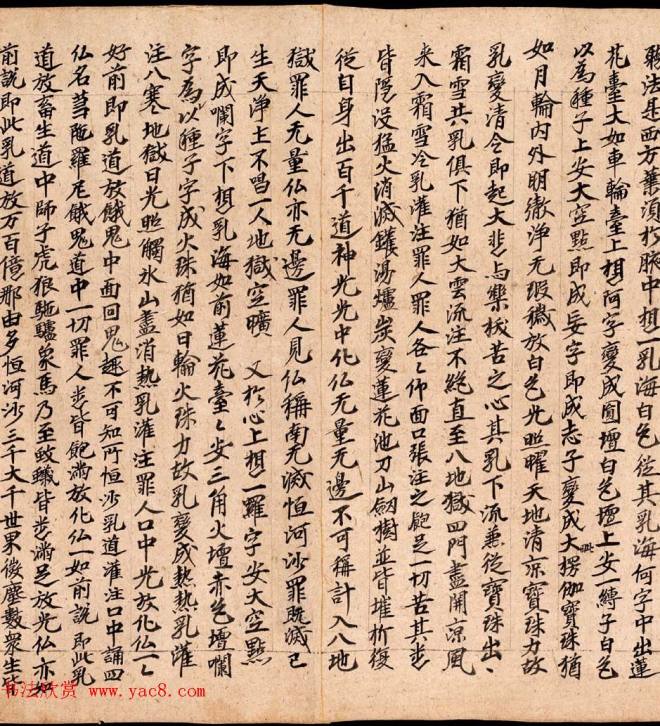 聽法是西方業須於腋中想一乳海白色從其乳海何字中出蓮
花臺大如車輪臺上想阿字變成圓壇白色壇上安一縛子白色
以為種子上安大空點即成鋄字即成志子變成大楞伽寶珠猶
如月輪內外明徹淨无瑕穢放白色光照曜天地清涼寶珠力故
乳變清令即起大悲与樂拔苦之心其乳下流兼從寶珠出
霜雪共乳俱下猶如大雲流注不絕直至八地獄四門盡開涼風
来入霜雪冷乳灌注罪人罪人各々仰面口張注之飽足一切苦具悉
皆隱没猛火消滅鑊湯爐炭變蓮花池刀山劔樹並皆摧折復
從自身出百千道神光光中化仏无量无邊不可稱計入八地
獄罪人无量仏亦无邊罪人見仏稱南无滅恒河沙罪既滅已
生天淨土不唱一人地獄空曠 又於心上想一羅字安大空點
即成囕字下想乳海如前蓮花臺々安三角火壇赤色壇囕
字為以種子字成火珠猶如日輪火珠力故乳變成熱熱乳灌
注八寒地獄日光照觸氷山盡消熱乳灌注罪人口中光放化仏一々
好前即乳道放餓鬼中面回鬼趣不可知所恒沙乳道灌注口中誦四
仏名䓁陁羅尼餓鬼道中一切罪人悉皆飽滿放化仏一如前說即此乳
道放畜生道中師子虎狼駞驢象馬乃至蚊蟻皆悉滿足放光仏亦如
前說即此乳道放万百億那由多恒河沙三千大千世界微塵數衆生皆
书法欣赏 www.yac8.com